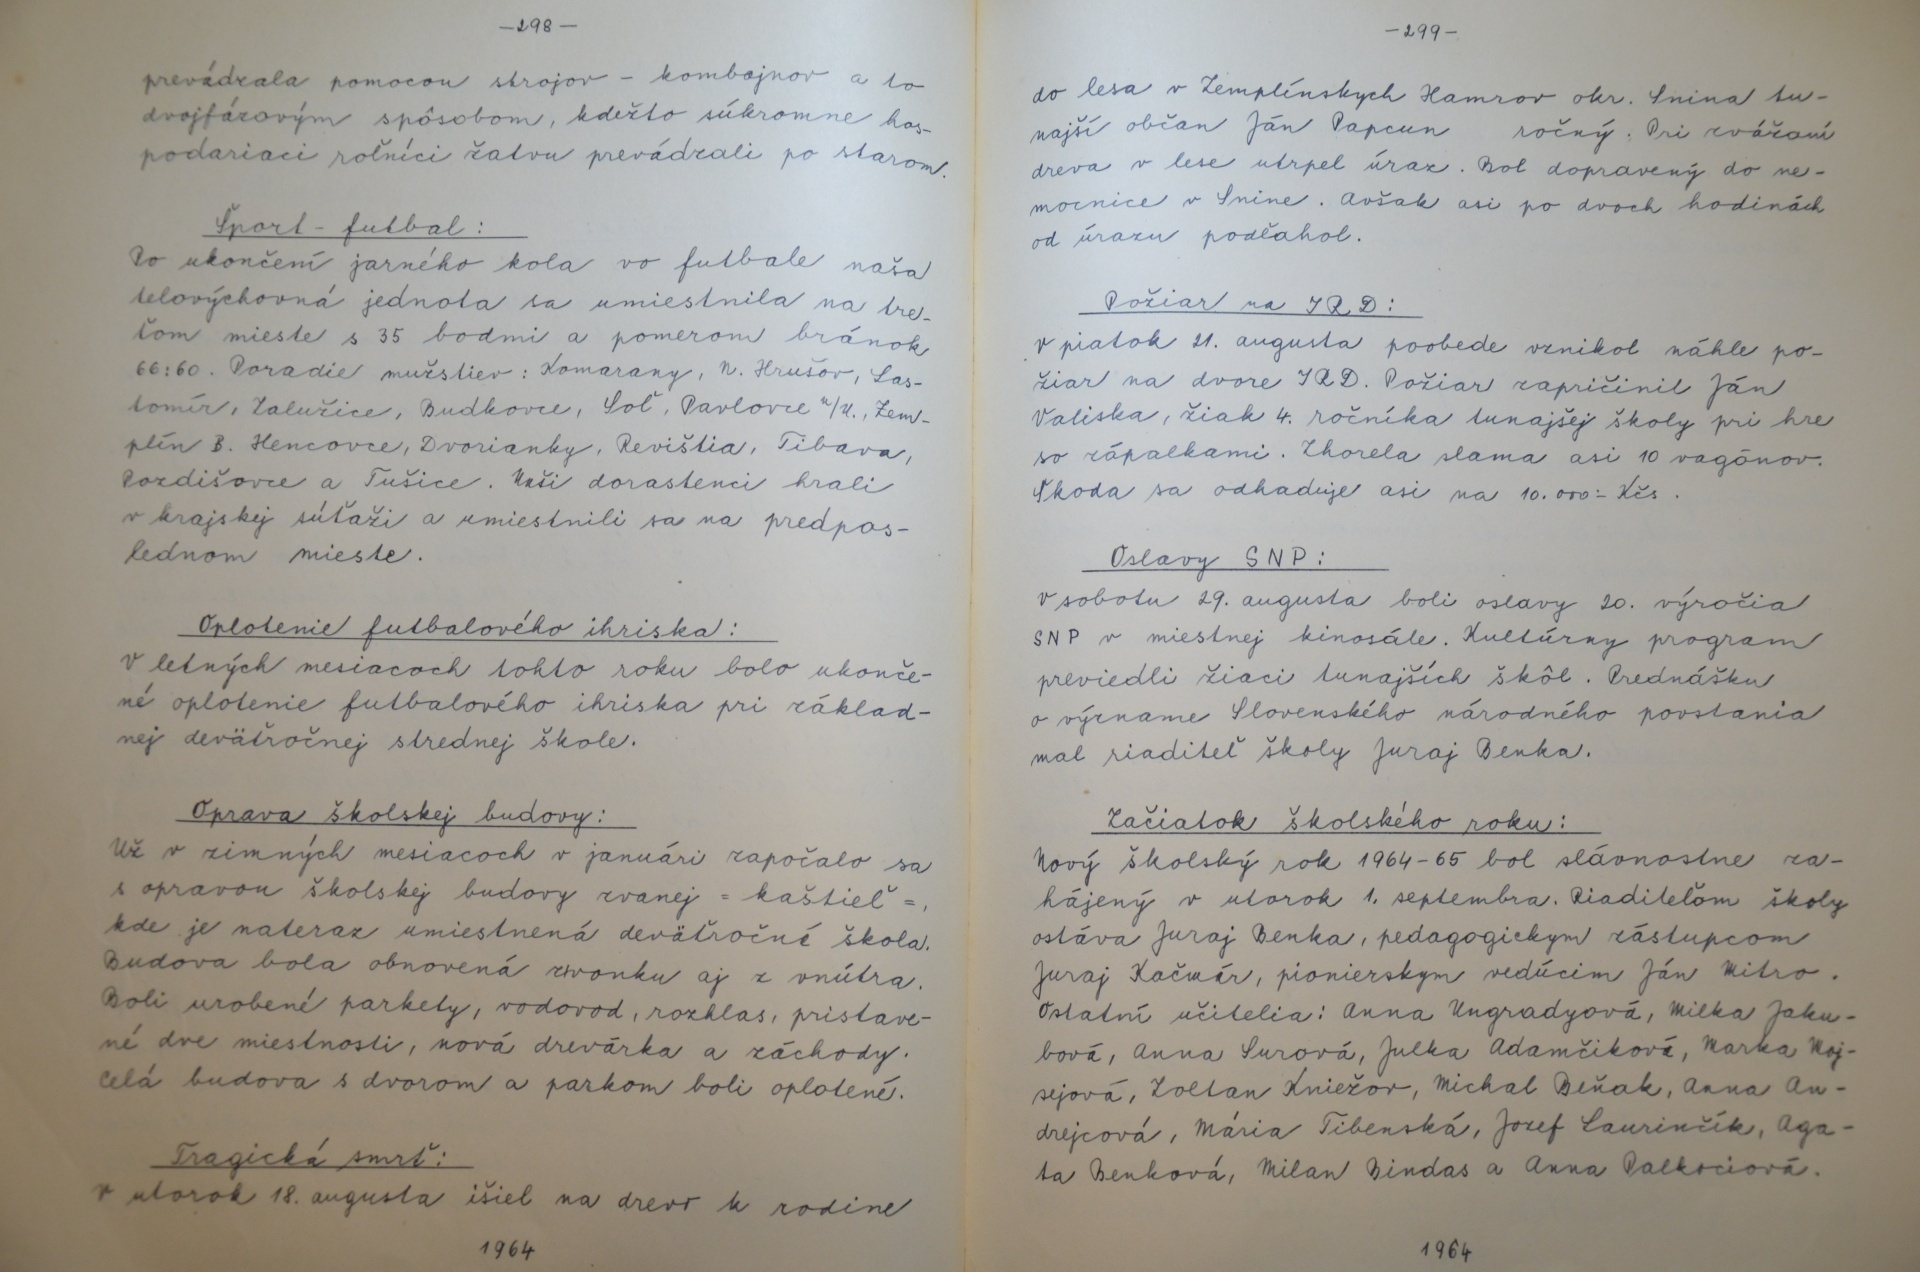 -298-
prevádzala pomocou strojov - kombajnov a to
dvojfázovým spôsobom, kdežto súkromne hos-
podariaci roľníci žatvu prevádzali po starom.
Šport - futbal:
Po ukončení jarného kola vo futbale naša
telovýchovná jednota sa umiestnila na tre-
ťom mieste s 35 bodmi a pomerom bránok
66:60. Poradie mužstiev: Komarany, N. Hrušov, Las-
tomír, Zalužice, Budkovce, Soľ, Pavlovce n/U., Zem-
plín B. Hencovce, Dvorianky, Revištia, Tibava,
Pozdišovce a Tušice. Naši dorastenci hrali
v krajskej súťaži a umiestnili sa na predpos-
lednom mieste.
Oplotenie futbalového ihriska:
V letných mesiacoch tohto roku bolo ukonče-
né oplotenie futbalového ihriska pri základ-
nej deväťročnej strednej škole.
Oprava školskej budovy:
Už v zimných mesiacoch v januári započalo sa
s opravou školskej budovy zvanej = kaštieľ =,
kde je nateraz umiestnená deväťročná škola.
Budova bola obnovená zvonku aj z vnútra.
Boli urobené parkety, vodovod, rozhlas, pristave-
né dve miestnosti, nová drevárka a záchody.
Celá budova s dvorom a parkom boli oplotené.
Tragická smrť:
V utorok 18. augusta išiel na drevo k rodine
1964
-299-
do lesa v Zemplínskych Hamrov okr. Snina tu-
najší občan Ján Papcun ročný. Pri zvážaní
dreva v lese utrpel úraz. Bol dopravený do ne-
mocnice v Snine. Avšak asi po dvoch hodinách
od úrazu podľahol.
Požiar na JRD:
V piatok 21. augusta poobede vznikol náhle po-
žiar na dvore JRD. Požiar zapričinil Ján
Valiska, žiak 4. ročníka tunajšej školy pri hre
so zápalkami. Zhorela slama asi 10 vagónov.
Škoda sa odhaduje asi na 10.000.- Kčs.
Oslavy SNP:
V sobotu 29. augusta boli oslavy 20. výročia
SNP v miestnej kinosále. Kultúrny program
previedli žiaci tunajších škôl. Prednášku
o význame Slovenského národného povstania
mal riaditeľ školy Juraj Benka.
Začiatok školského roku:
Nový školský rok 1964-65 bol slávnostne za-
hájený v utorok 1. septembra. Riaditeľom školy
ostáva Juraj Benka, pedagogickym zástupcom
Juraj Kačmár, pionierskym vedúcim Ján Mitro.
Ostatní učitelia: Anna Ungradyová, Milka Jaku-
bová, Anna Surová, Julka Adamčiková, Marka Moj-
sejová, Zoltan Kniežov, Michal Beňak, Anna An-
drejcová, Mária Tibenská, Jozef Laurinčík, Aga-
ta Benková, Milan Bindas a Anna Palkociová.
1964